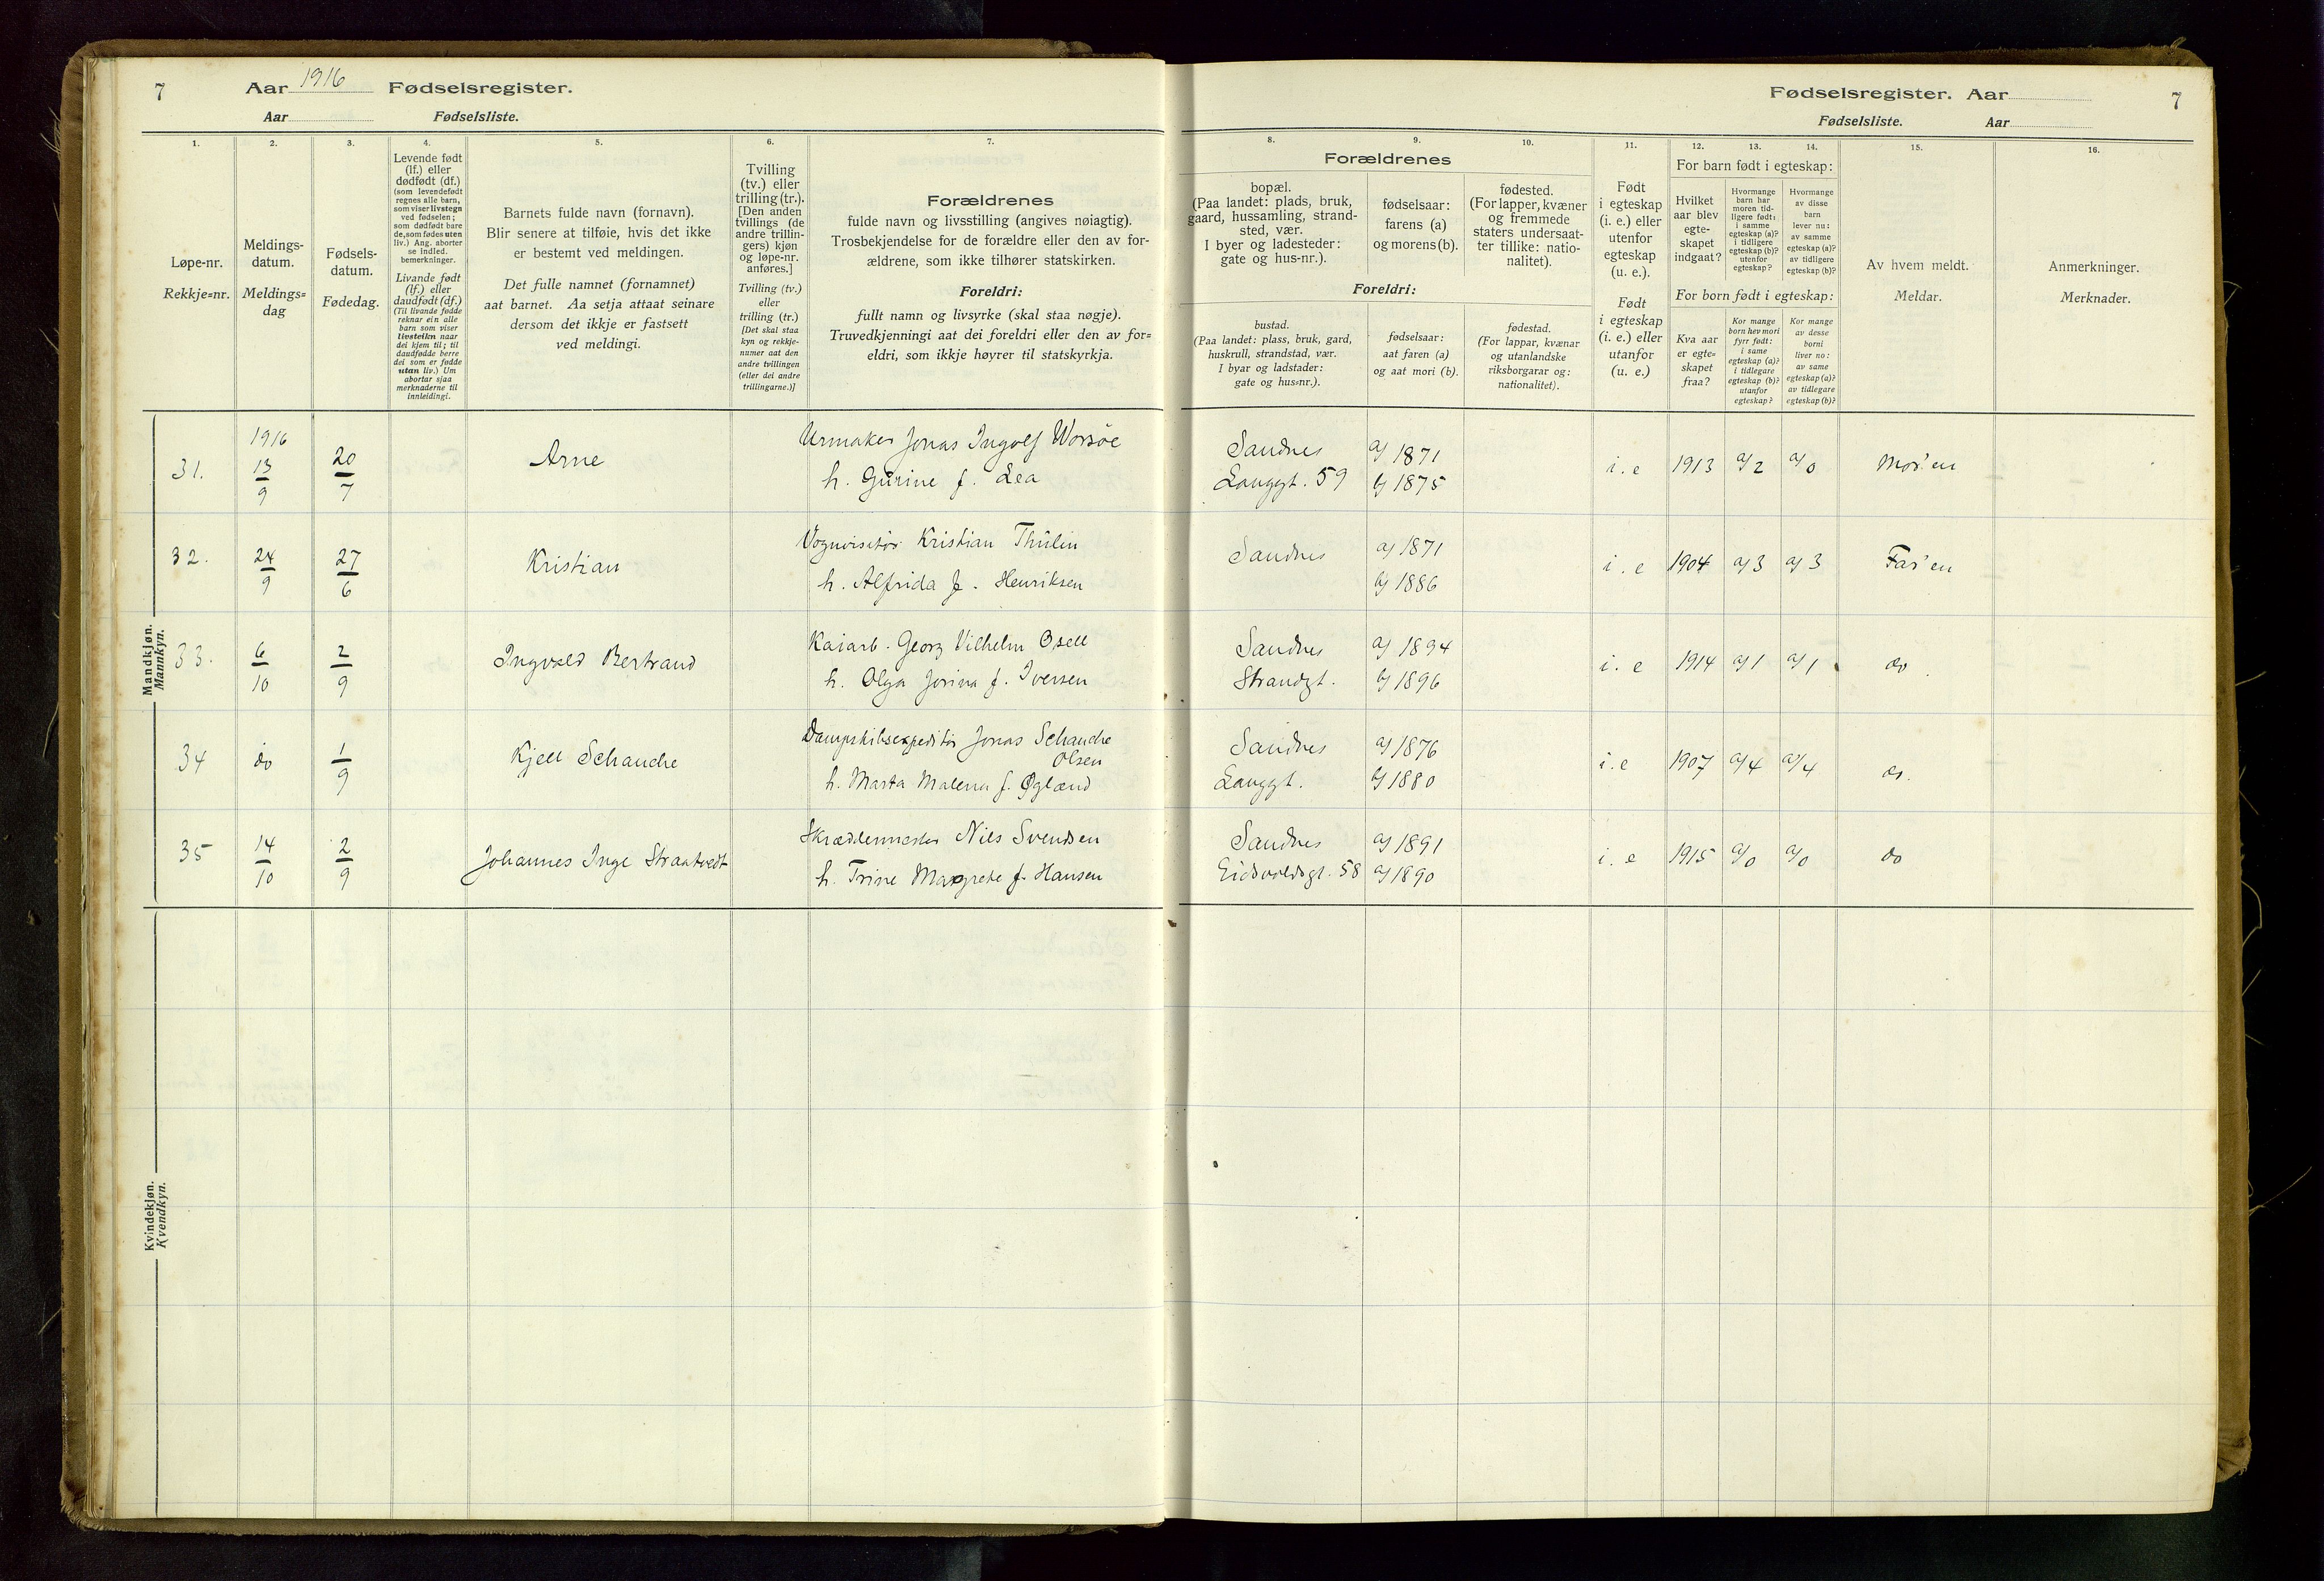 7 Aar 1916 Fødselsregister.
Aar Fødselsliste.
1. 2. 3. 4. 5. 6. 7.
Løpe-nr.
Rekkje=nr.
Meldings-
datum.
Meldings=
dag
Fødsels-
datum.
Fødedag.
Levende født
(lf.) eller
dødfødt (df.)
(som levendefødt
regnes alle barn,
som viser livstegn
ved fødselen;
som dødfødt bare
de, som fødes uten
liv.) Ang. aborter
se indled.
bemerkninger.
Livande født
(lf.) eller
daudfødt (df.)
(Til livande fødde
reknar ein alle
barn som viser
livsteikn naar
dei kjem til; til
daudfødde berre
dei som er fødde
utan liv.) Um
abortar sjaa
merknaderne til
innleidingi.
Barnets fulde navn (fornavn).
Blir senere at tilføie, hvis det ikke
er bestemt ved meldingen.
Det fulle namnet (fornamnet)
aat barnet. Aa setja attaat seinare
dersom det ikkje er fastsett
ved meldingi.
Tvilling
(tv.) eller
trilling (tr.).
[Den anden
tvillings (de
andre trillin-
gers) kjøn
og løpe-nr.
anføres.]
Tvilling (tv.)
eller
trilling (tr.)
[Det skal staa
kyn og rekkje-
numer aat den
andre tvillingen
(eller dei andre
trillingarne.)]
Forældrenes
fulde navn og livsstilling (angives nøiagtig).
Trosbekjendelse for de forældre eller den av for-
ældrene, som ikke tilhører statskirken.
Foreldri:
fullt namn og livsyrke (skal staa nøgje).
Truvedkjenningi aat dei foreldri eller den av for=
eldri, som ikkje høyrer til statskyrkja.
Mandkjøn.
Mannkyn.
31. 1916 13/9 20/7 Arne
Urmaker Jonas Ingolf Worsöe
h. Gurine f. Lea
32. 24/9 27/6 Kristian
Vognvisitör Kristian Thulin
h. Alfrida f. Henriksen
33. 6/10 2/9 Ingvald Bertrand
Kaiarb. Georg Vilhelm Osell
h. Olga Jorina f. Iversen
34 do 1/9 Kjell Schanche
Dampskibsexpeditör Jonas Schanche
Olsen
h. Marta Malena f. Øglænd
35 14/10 2/9 Johannes Inge Straatvedt
Skræddermester Nils Svendsen
h. Trine Margrete f. Hansen
Kvindekjøn.
Kvendkyn.
Fødselsregister. Aar 7
Fødselsliste. Aar
8. 9. 10. 11. 12. 13. 14. 15. 16.
Forældrenes
bopæl.
(Paa landet: plads, bruk,
gaard, hussamling, strand-
sted, vær.
I byer og ladesteder:
gate og hus-nr.).
fødselsaar:
farens (a)
og morens (b).
fødested.
(For lapper, kvæner
og fremmede
staters undersaat-
ter tillike: natio-
nalitet).
Foreldri:
bustad.
(Paa landet: plass, bruk, gard,
huskrull, strandstad, vær.
I byar og ladstader:
gate og hus=nr.).
fødselsaar:
aat faren (a)
og aat mori (b).
fødestad.
(For lappar, kvænar
og utanlandske
riksborgarar og:
nationalitet).
Født
i egteskap
(i. e.) eller
utenfor
egteskap
(u. e.).
Født
i egteskap
(i. e.) eller
utanfor
(u. e.)
For barn født i egteskap:
Hvilket
aar blev
egte-
skapet
indgaat?
Hvormange
barn har
moren tid-
ligere født:
i samme
egteskap (a)?
i tidligere
egteskap (b)?
utenfor
egteskap?
Hvormange
av disse
barn
lever nu:
av samme
egteskap (a)?
av tidligere
egteskap (b)?
For born født i egteskap:
Kva aar
er egte=
skapet
fraa?
Kor mange
born hev mori
fyrr født:
i same
egteskap (a)?
i tidlegare
egteskap (b)?
utanfor
egteskap?
Kor mange
av desse
borni
liver no:
av same
egteskap (a)?
av tidlegare
egteskap (b)?
Av hvem meldt.
Meldar.
Anmerkninger.
Merknader.
Sandnes a) 1871
Langgt. 59 b) 1875
i. e 1913 a/2 a/0 Mor'en
Sandnes a) 1871
b) 1886
i. e 1904 a)3 a)3 Far'en
Sandnes a) 1894
Strandgt. b) 1896
i. e 1914 a)1 a)1 do.
Sandnes a) 1876
Langgt. b) 1880
i. e 1907 a/4 a/4 do.
Sandnes a) 1891
Eidsvoldsgt. 58 a) 1890
i. e 1915 a/0 a/0 do